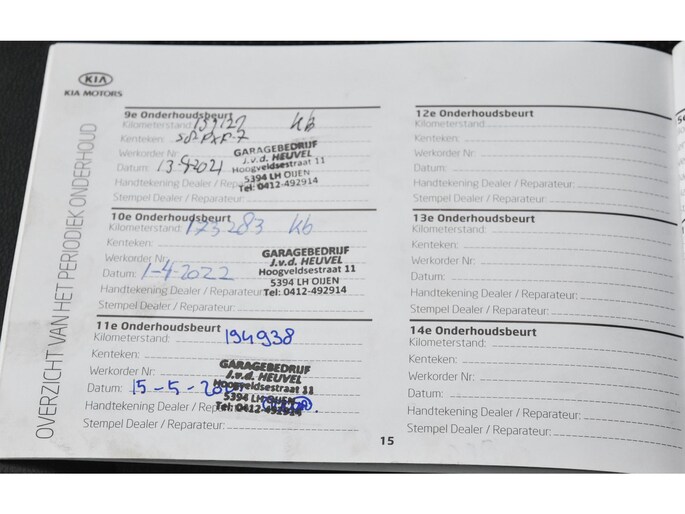 KIA
KIA MOTORS
OVERZICHT VAN HET PERIODIEK ONDERHOUD
9e Onderhoudsbeurt
Kilometerstand: 159127 kb
Kenteken:
Werkorder Nr.:
Datum: 2021
Handtekening Dealer / Reparateur:
Stempel Dealer / Reparateur:
GARAGEBEDRIJF
J.v.d. HEUVEL
Hoogveldsestraat 11
5394 LH OIJEN
Tel: 0412-492914
10e Onderhoudsbeurt
Kilometerstand: 173.283 kb
Kenteken:
Werkorder Nr.:
Datum: 1-4-2022
Handtekening Dealer / Reparateur:
Stempel Dealer / Reparateur:
GARAGEBEDRIJF
J.v.d. HEUVEL
Hoogveldsestraat 11
5394 LH OIJEN
Tel: 0412-492914
11e Onderhoudsbeurt
Kilometerstand: 194938
Kenteken:
Werkorder Nr:
Datum: 15-5-
Handtekening Dealer / Reparateur:
Stempel Dealer / Reparateur:
GARAGEBEDRIJF
J.v.d. HEUVEL
Hoogveldsestraat 11
5394 LH OIJEN
Tel: 0412-492914
12e Onderhoudsbeurt
Kilometerstand:
Kenteken:
Werkorder Nr:
Datum:
Handtekening Dealer / Reparateur:
Stempel Dealer / Reparateur:
13e Onderhoudsbeurt
Kilometerstand:
Kenteken:
Werkorder Nr:
Datum:
Handtekening Dealer / Reparateur:
Stempel Dealer / Reparateur:
14e Onderhoudsbeurt
Kilometerstand:
Kenteken:
Werkorder Nr:
Datum:
Handtekening Dealer / Reparateur:
Stempel Dealer / Reparateur:
15